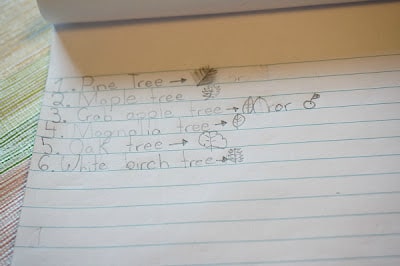 1. Pine Tree → or
2. Maple tree
3. Crab apple tree → or
4. Magnolia tree →
5. Oak tree →
6. White birch tree →